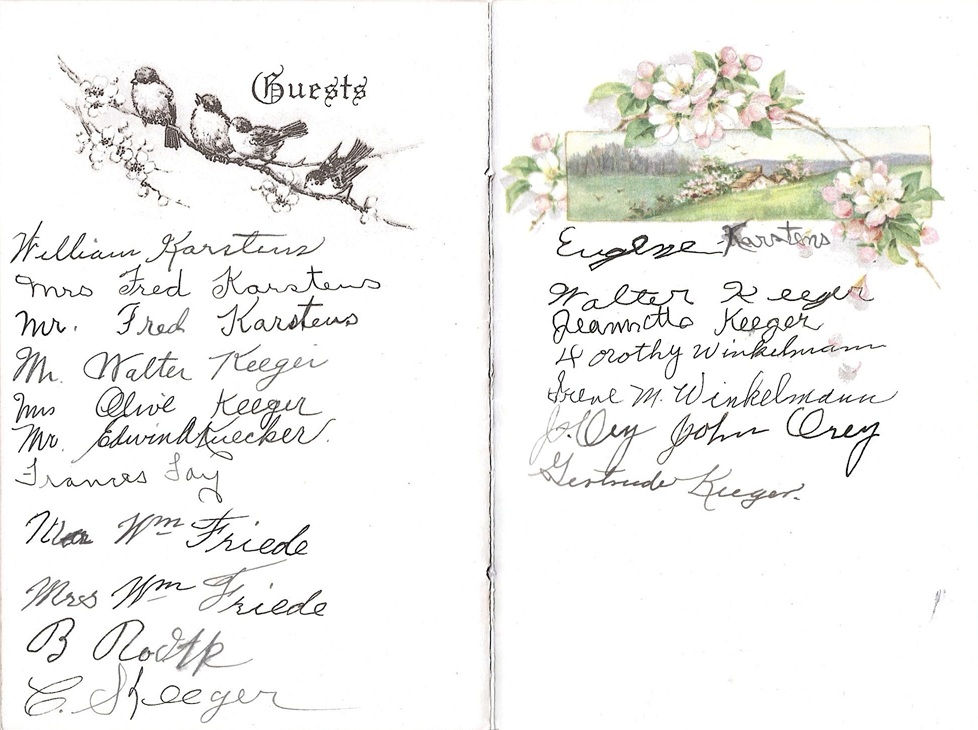 Guests
William Karstens
Mrs Fred Karstens
Mr. Fred Karstens
Mr. Walter Keeger
Mrs Olive Keeger
Mr. Edwin A Kuecker.
Frances Fay
Wm Friede
Mrs Wm Friede
B
C. Keeger
Eugene Karstens
Walter Keeger
Jeannette Keeger
Dorothy Winkelmann
Irene M. Winkelmann
John Orey
Gertrude Keeger.